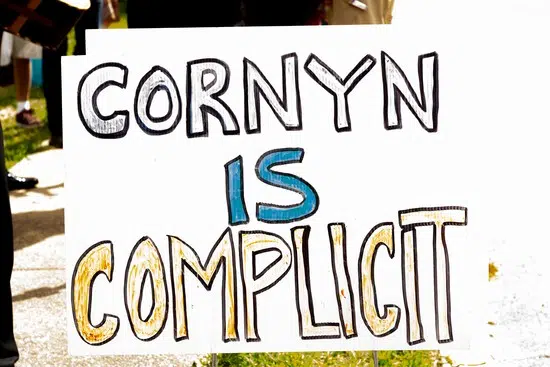 CORNYN
IS
COMPLICIT